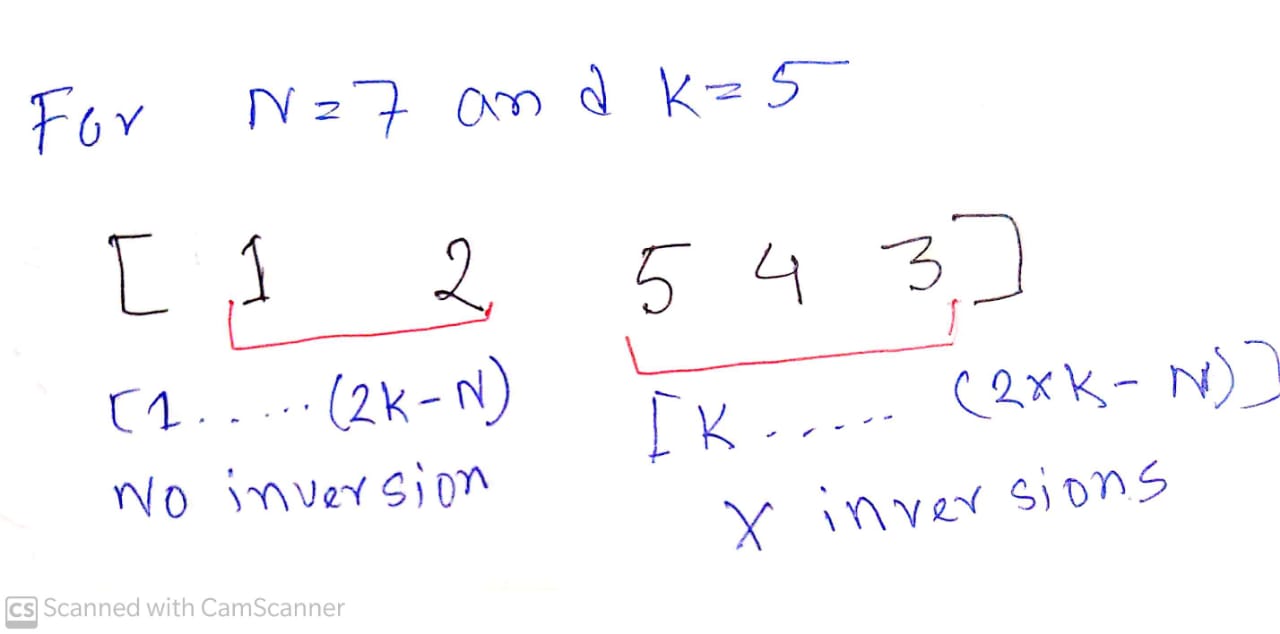 For N=7 and K=5
[ 1 2 5 4 3 ]
[1.....(2K-N) [K ...... (2xK-N)]
No inversion X inversions
CS Scanned with CamScanner